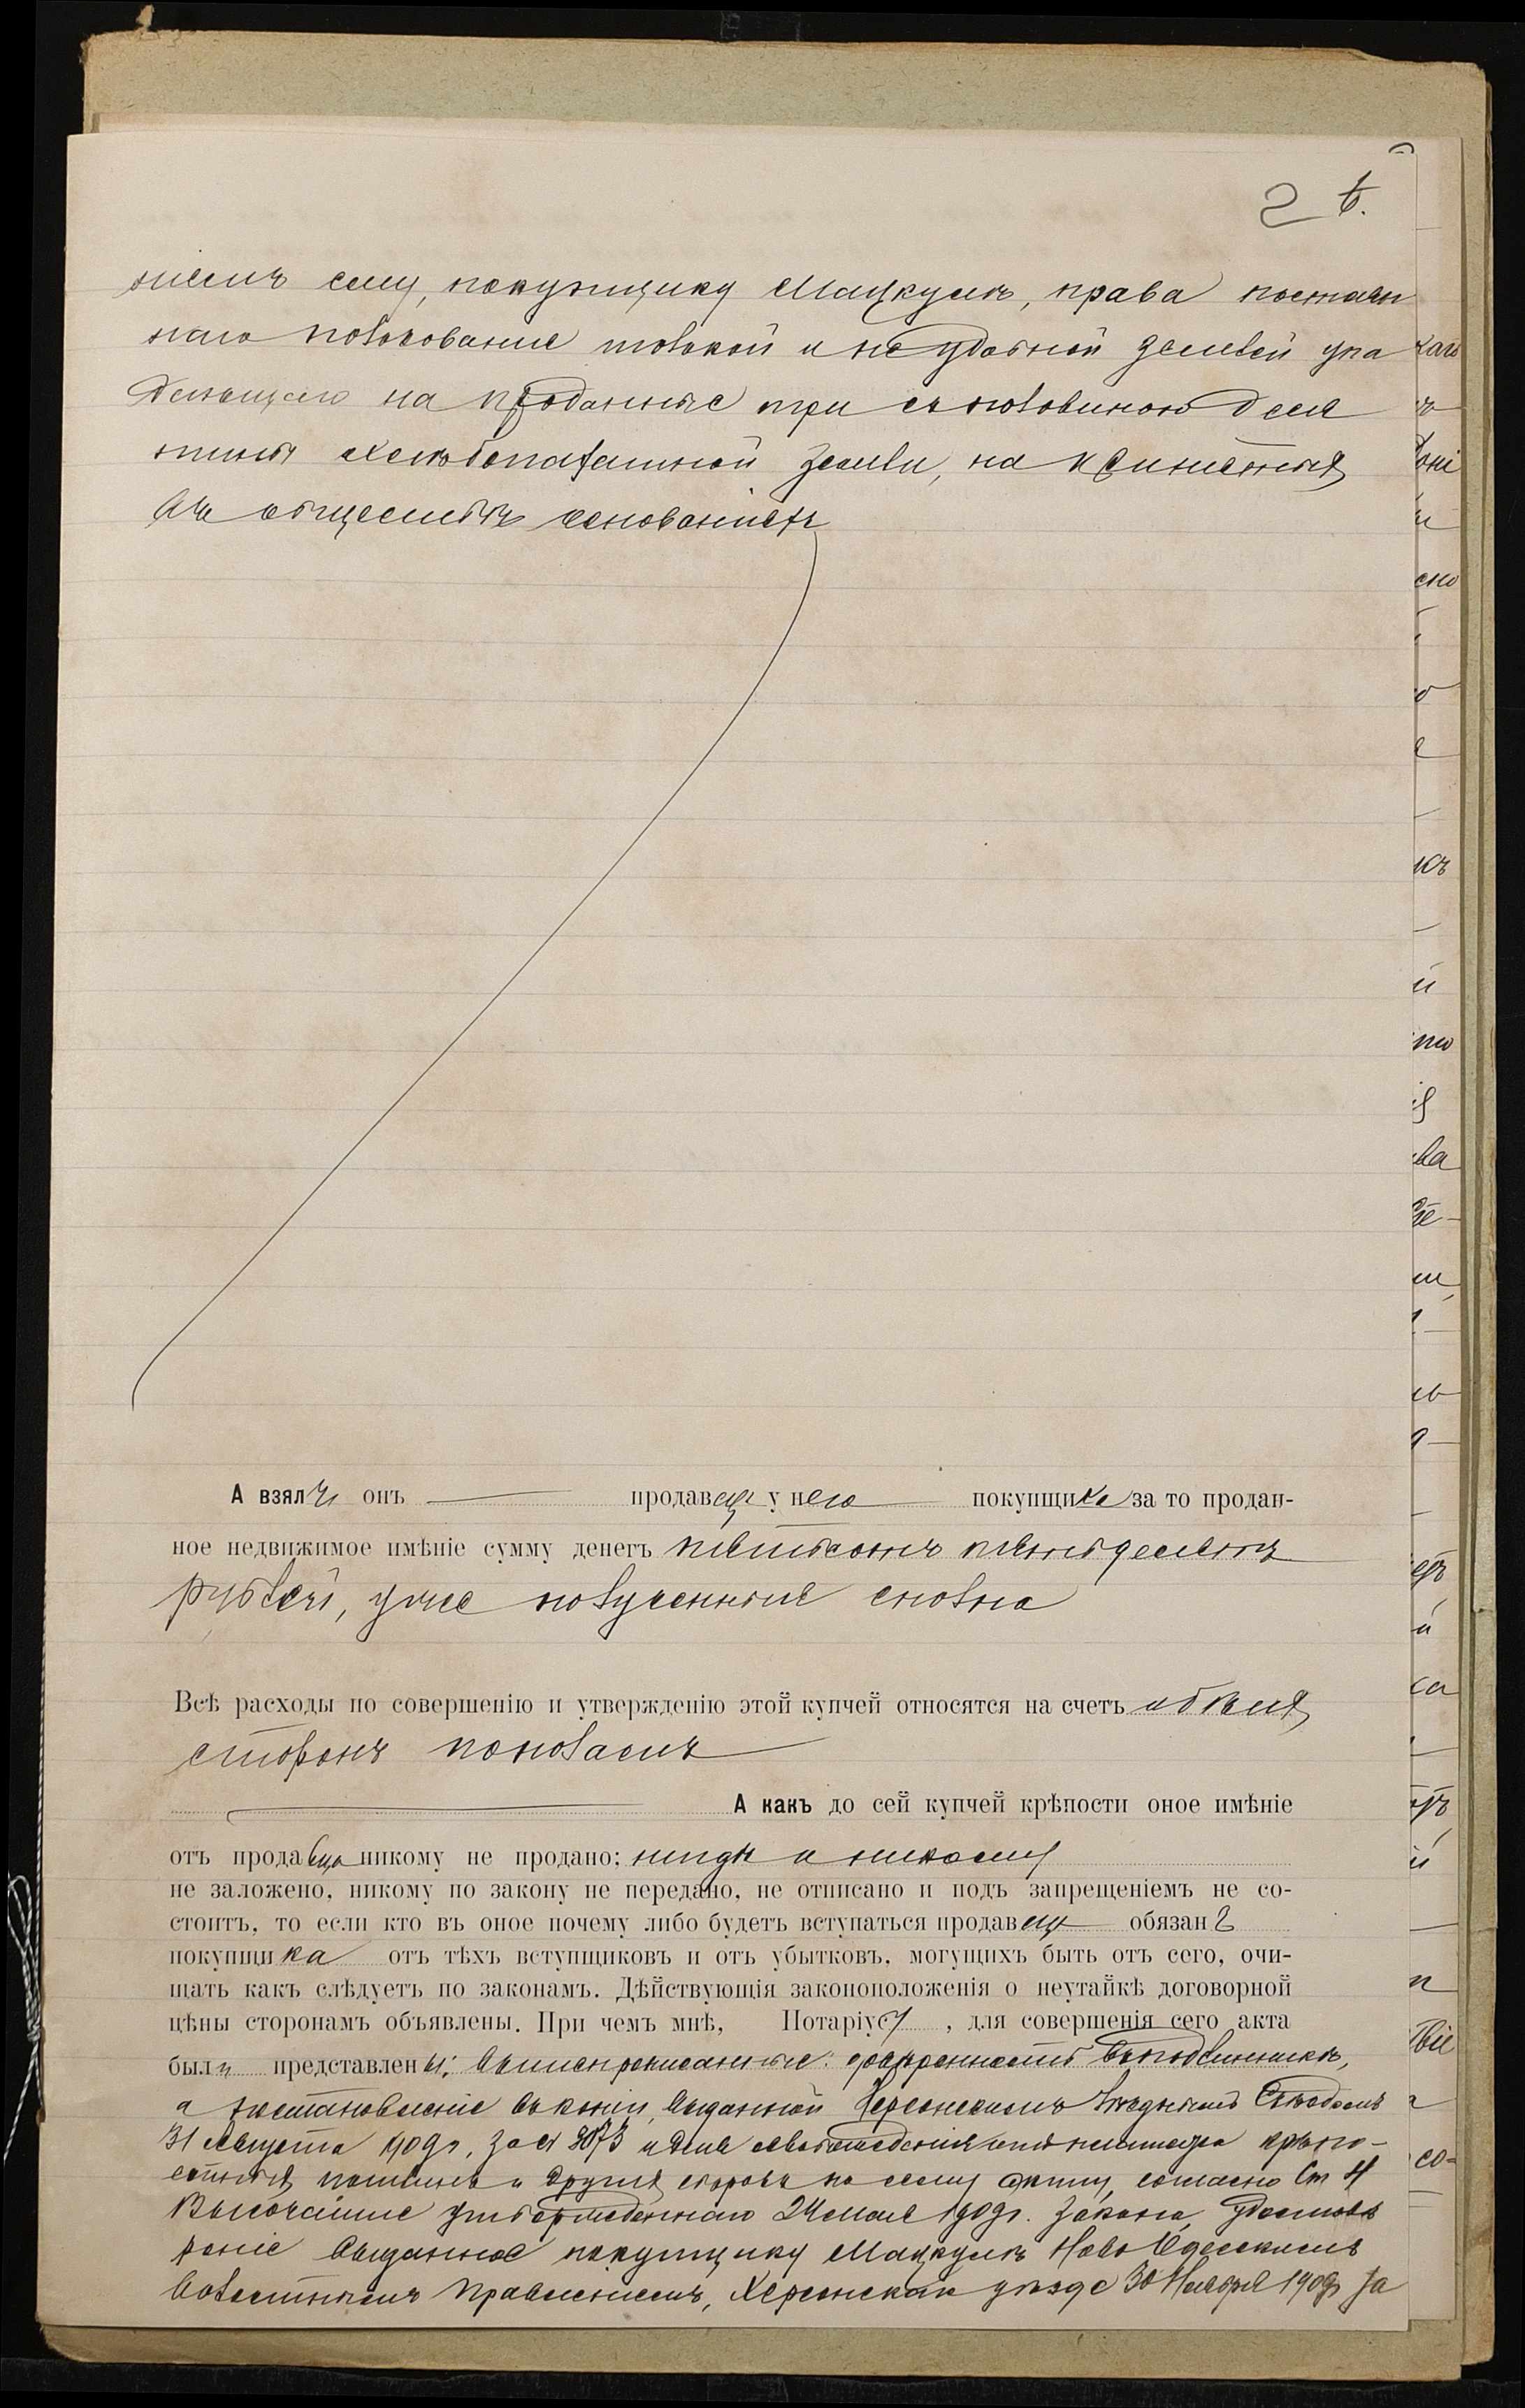 2 б.
ніемъ ему, покупщику Мацкулѣ, права постоян
наго пользованія толокой и неудобной землей упа
дающаго на проданные три съ половиною деся
тины хлѣбопахатной земли, на принятыхъ
въ обществѣ основаніяхъ
А взялъ онъ продавецъ у него покупщика за то продан-
ное недвижимое имѣніе сумму денегъ пятьсотъ пятьдесятъ
рублей, уже полученныя сполна
Всѣ расходы по совершенію и утвержденію этой купчей относятся на счетъ обѣихъ
сторонъ пополамъ
А какъ до сей купчей крѣпости оное имѣніе
отъ продавца никому не продано: нигдѣ и никому
не заложено, никому по закону не передано, не отписано и подъ запрещеніемъ не со-
стоитъ, то если кто въ оное почему либо будетъ вступаться продавецъ обязанъ
покупщика отъ тѣхъ вступщиковъ и отъ убытковъ, могущихъ быть отъ сего, очи-
щать какъ слѣдуетъ по законамъ. Дѣйствующія законоположенія о неутайкѣ договорной
цѣны сторонамъ объявлены. При чемъ мнѣ, Нотаріусу, для совершенія сего акта
были представлены: вышепрописанные: въ подлинникѣ,
а постановленіе въ копіи, выданной Херсонскимъ Уѣзднымъ Съѣздомъ
31 Августа 1909г. за № 3073 и для платежа крѣпо-
стныхъ пошлинъ и другихъ сборовъ по сему акту, согласно Ст 4
Высочайше утвержденнаго 24 мая 1909г. закона, удостовѣ
реніе выданное покупщику Мацкулѣ Ново Одесскимъ
Волостнымъ Правленіемъ, Херсонскаго уѣзда 30 Ноября 1909г за